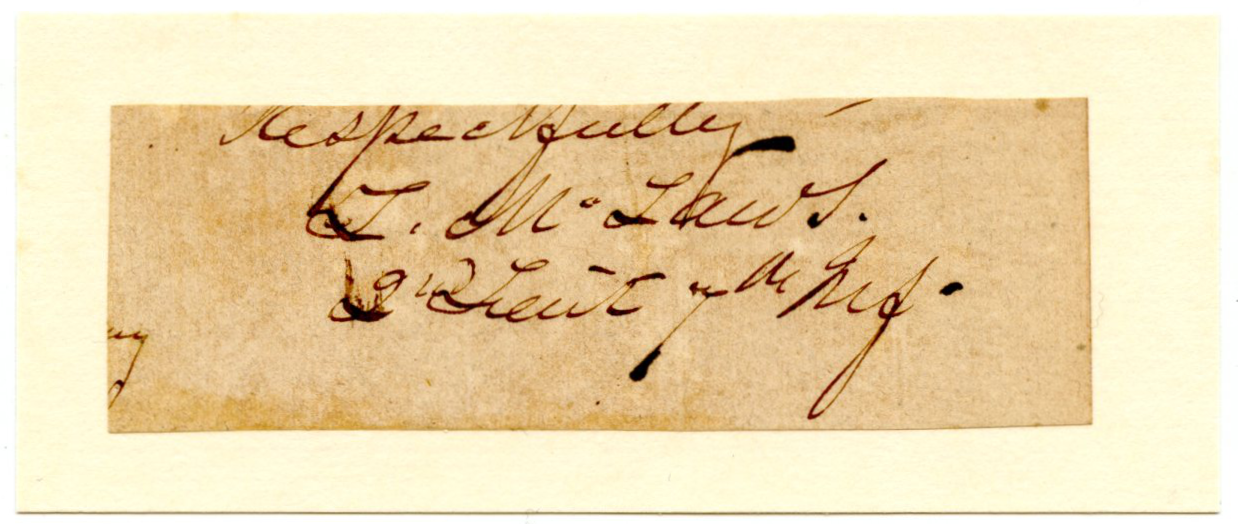 Respectfully
L. McLaws.
2nd Lieut 7th Inf.